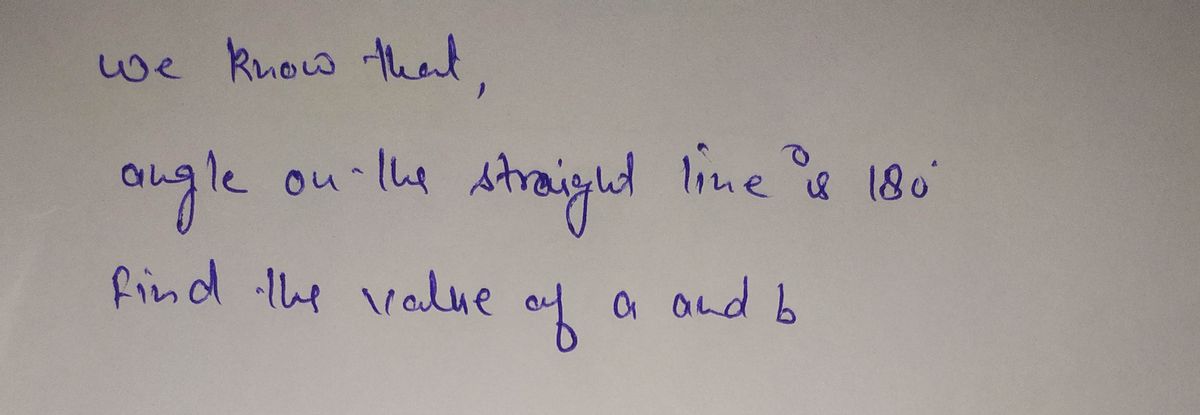 we know that,
angle on the straight line is 180°
find the value of a and b